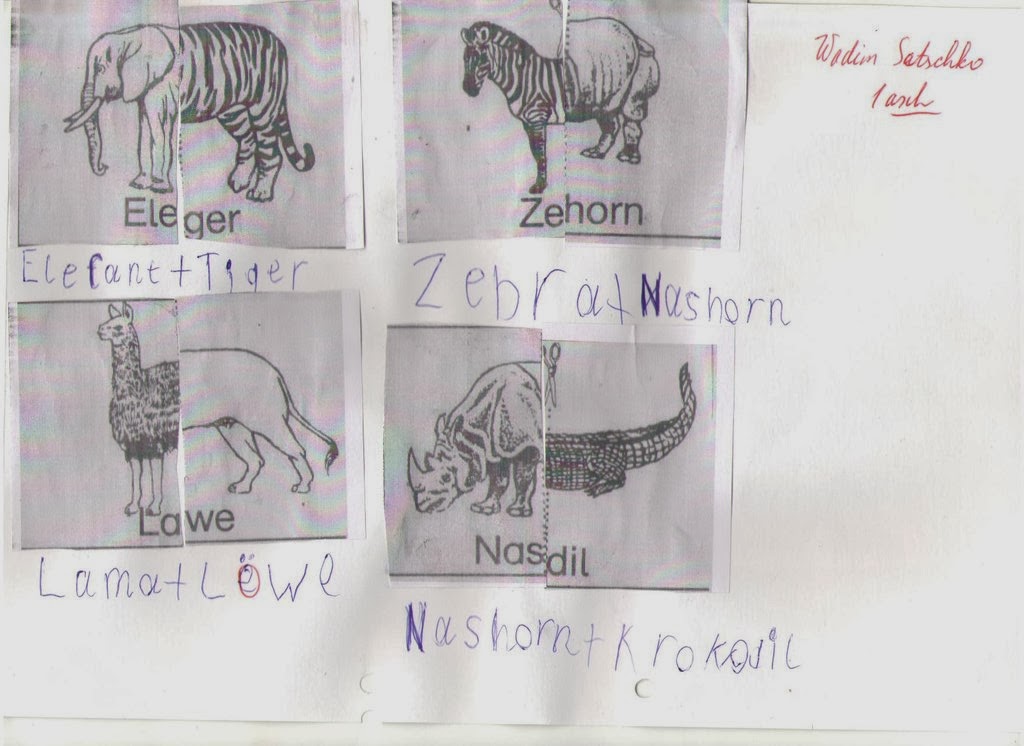 Wadim Satschko
1 asch
Eleger
Zehorn
Elefant+Tiger
Zebra+Nashorn
Lawe
Nasdil
Lama+Löwe
Nashorn+Krokosil